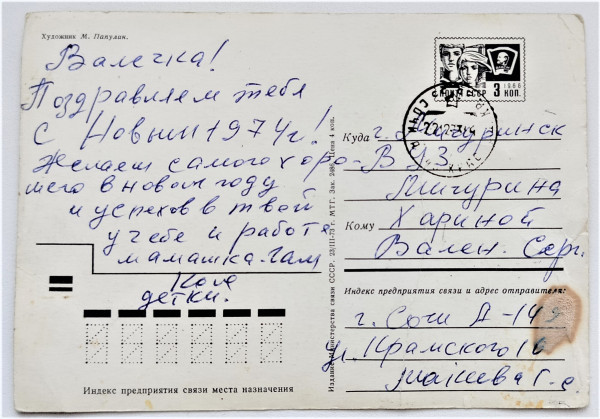 Художник М. Папулин.
Валечка!
Поздравляем тебя
с Новым 1974 г!
Желаем самого хоро-
шего в новом году
и успехов в твоей
учебе и работе
мамашка.
Коля
детки.
Индекс предприятия связи места назначения
Издание Министерства связи СССР. 23/III-73 г. МТГ. Зак. Цена 4 коп.
1966
ПОЧТА СССР 3 КОП.
СОЧИ
Куда г. Мичуринск
В
Мичурина
Кому Хариной
Вален. Серг.
Индекс предприятия связи и адрес отправителя:
г. Сочи А-149
ул. Крамского 16